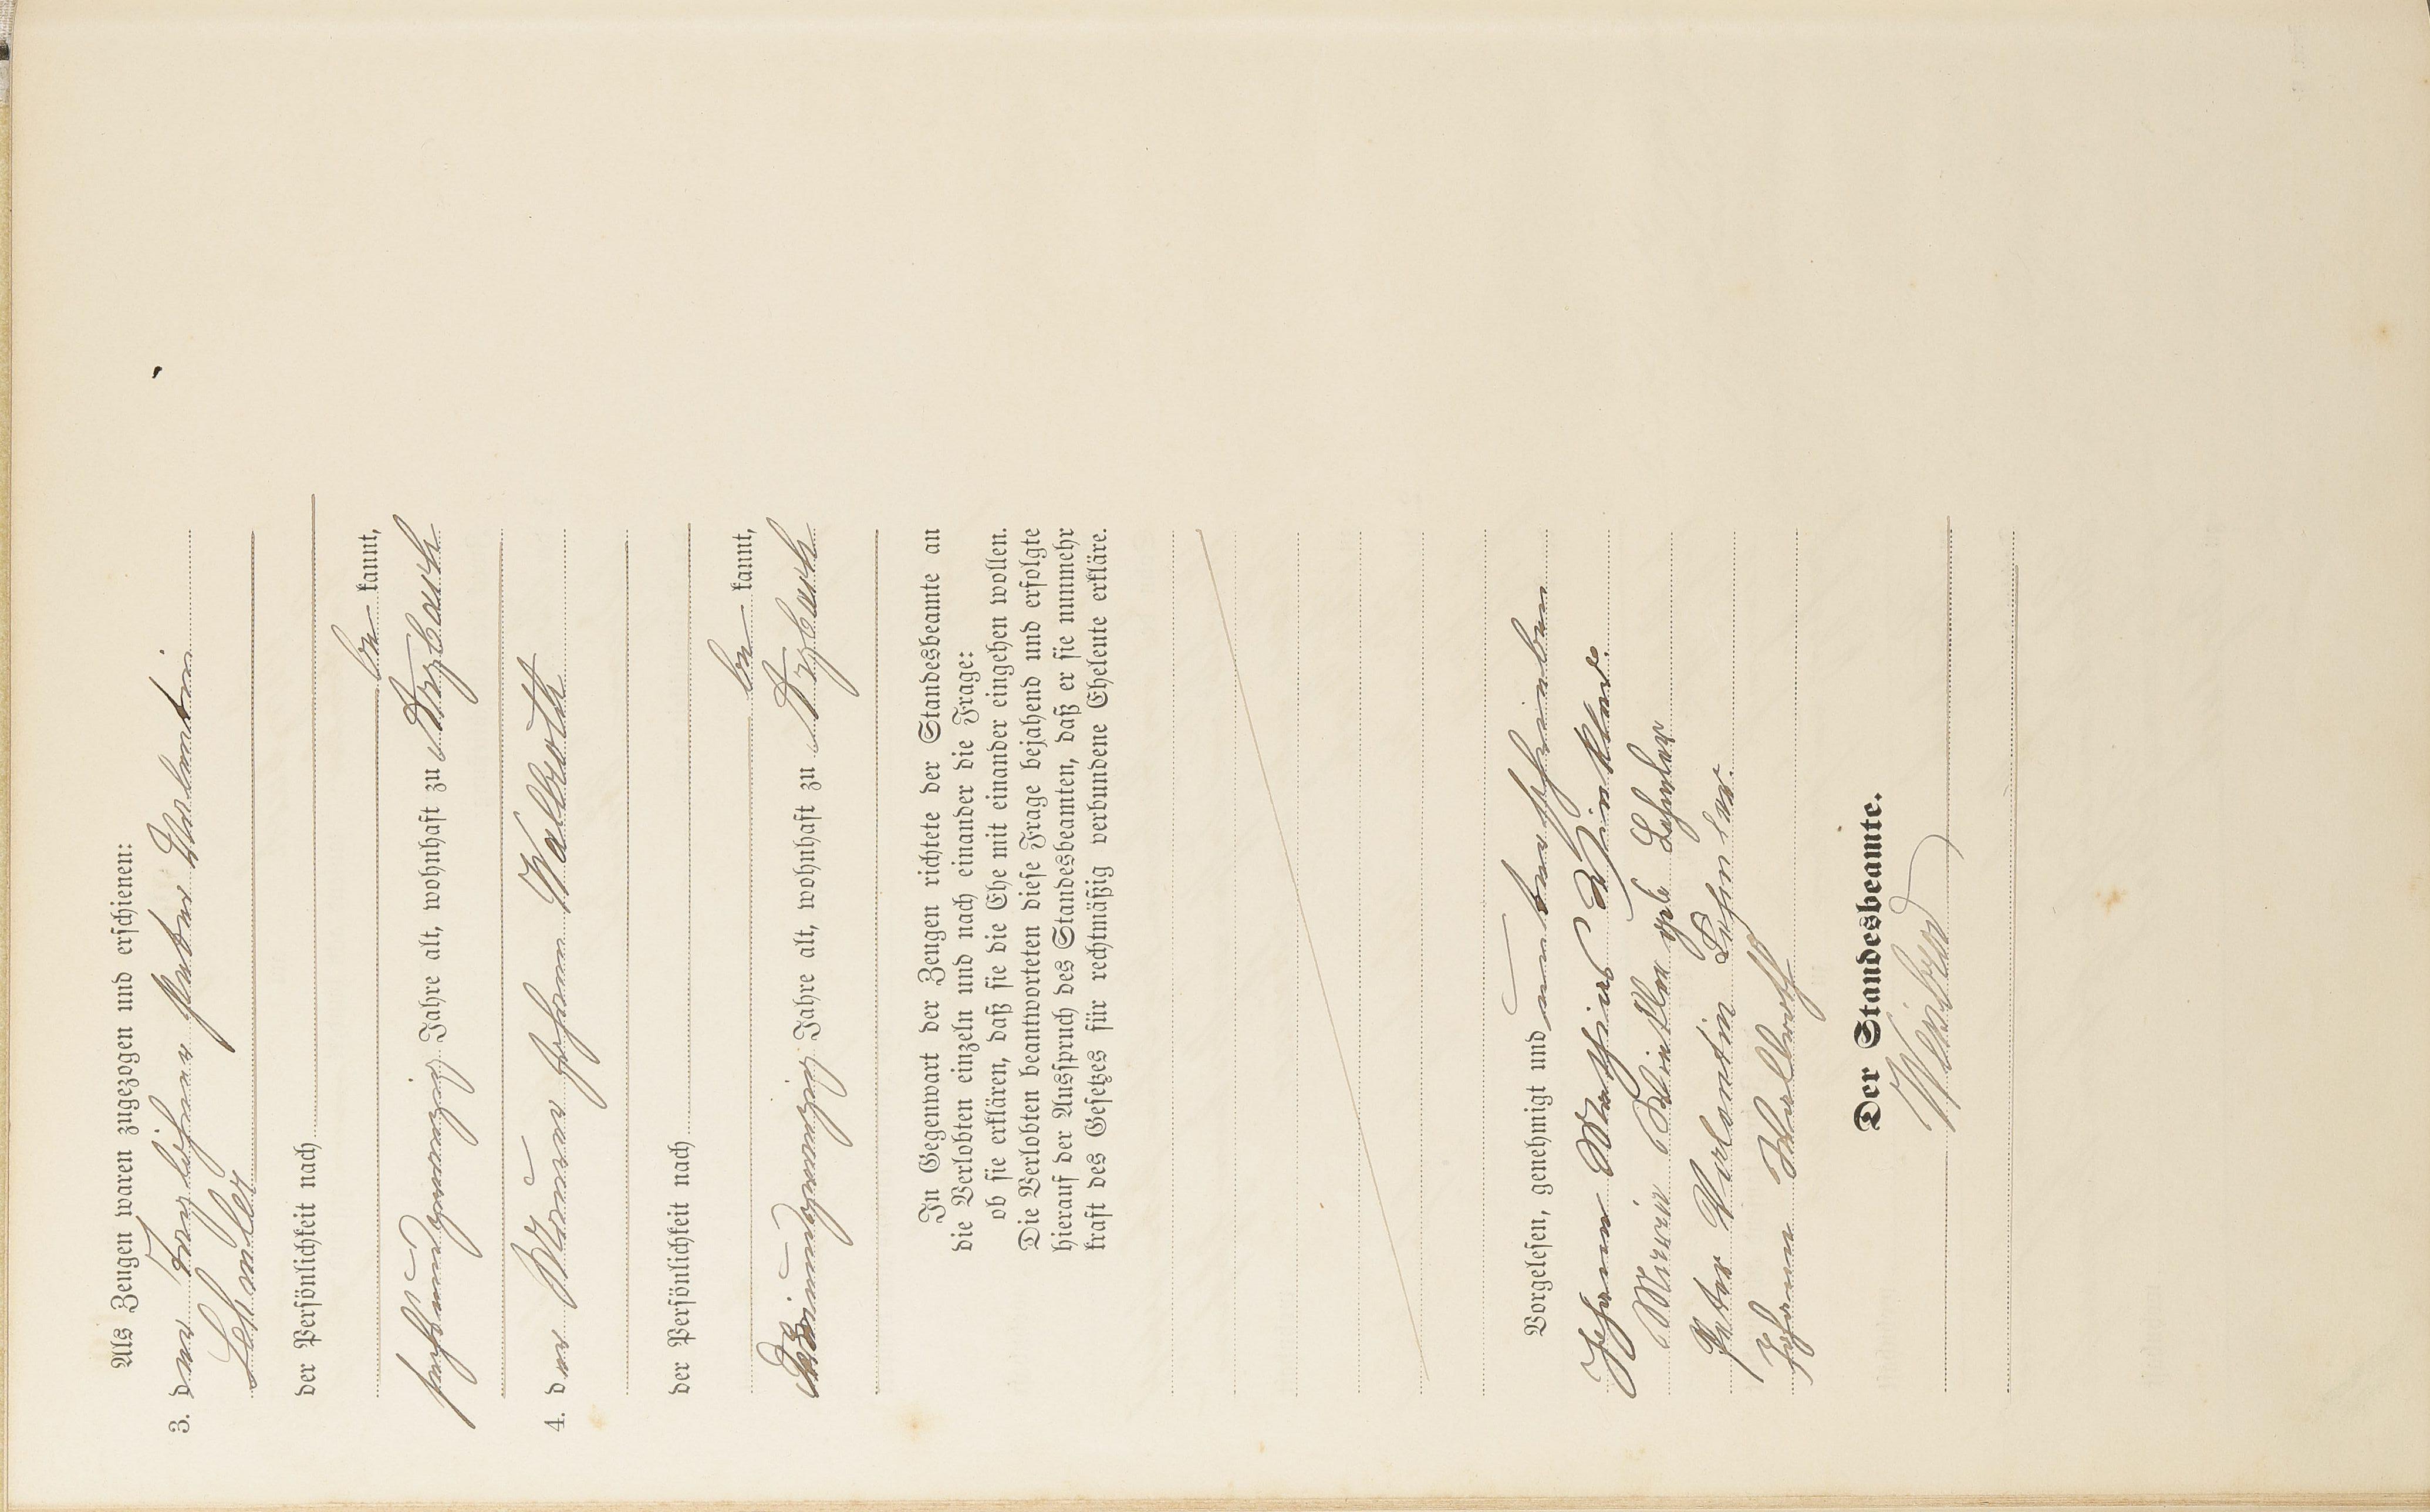 Als Zeugen waren zugezogen und erschienen:
3. der Tagelöhner Peter Valentin
Schaller
der Persönlichkeit nach
be kannt,
sechsundzwanzig Jahre alt, wohnhaft zu Arzbach
4. der Maurer Johann Wallroth
der Persönlichkeit nach
be kannt,
dreiundzwanzig Jahre alt, wohnhaft zu Arzbach
In Gegenwart der Zeugen richtete der Standesbeamte an
die Verlobten einzeln und nach einander die Frage:
ob sie erklären, daß sie die Ehe mit einander eingehen wollen.
Die Verlobten beantworteten diese Frage bejahend und erfolgte
hierauf der Ausspruch des Standesbeamten, daß er sie nunmehr
kraft des Gesetzes für rechtmäßig verbundene Eheleute erkläre.
Vorgelesen, genehmigt und unterschrieben
Johann Mathias Winkler.
Maria geb
Peter Valentin
Johann Wallroth
Der Standesbeamte.